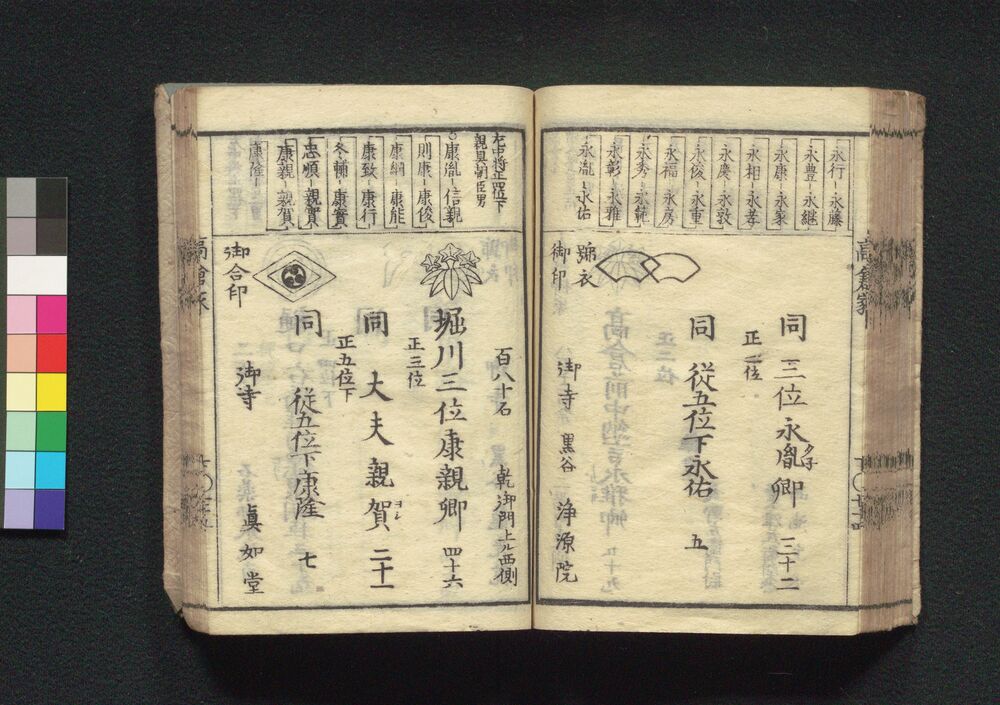 永行ー永藤
永豊ー永継
永康ー永家
永相ー永孝
永慶ー永敦
永俊ー永重
永福ー永房
永秀ー永範
永彰ー永雅
永胤ー永佑
同 三位永胤卿 三十二
タネ
正三位
同 従五位下永佑 五
號衣
御印
御寺 黒谷 浄源院
高倉家
左中将正四位下
親具朝臣男
康胤ー信親
則康ー康俊
康綱ー康能
康致ー康行
冬輔ー康實
忠順ー親實
康親ー親賀
康隆ー
百八十石 乾御門上ル西側
堀川三位康親卿 四十六
正三位
同 大夫親賀 二十一
ヨシ
正五位下
同 従五位下康隆 七
御合印
御寺 眞如堂
高倉家